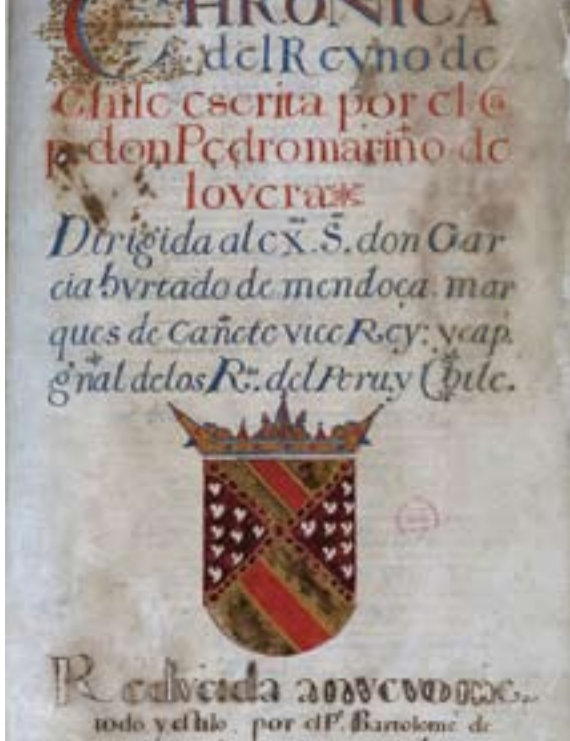 CHRONICA
del Reyno de
Chile escrita por el c@
p. don Pedro mariño de
lovera*
Dirigida al ex.̃ S.̃ don Gar
cia hurtado de mendoça. mar
ques de Cañete vice Rey: y cap.
g̃nal de los R.ˢ del Peru y Chile.
Reducida a nuevo me.
todo y estilo por el P.ᵉ Bartolome de